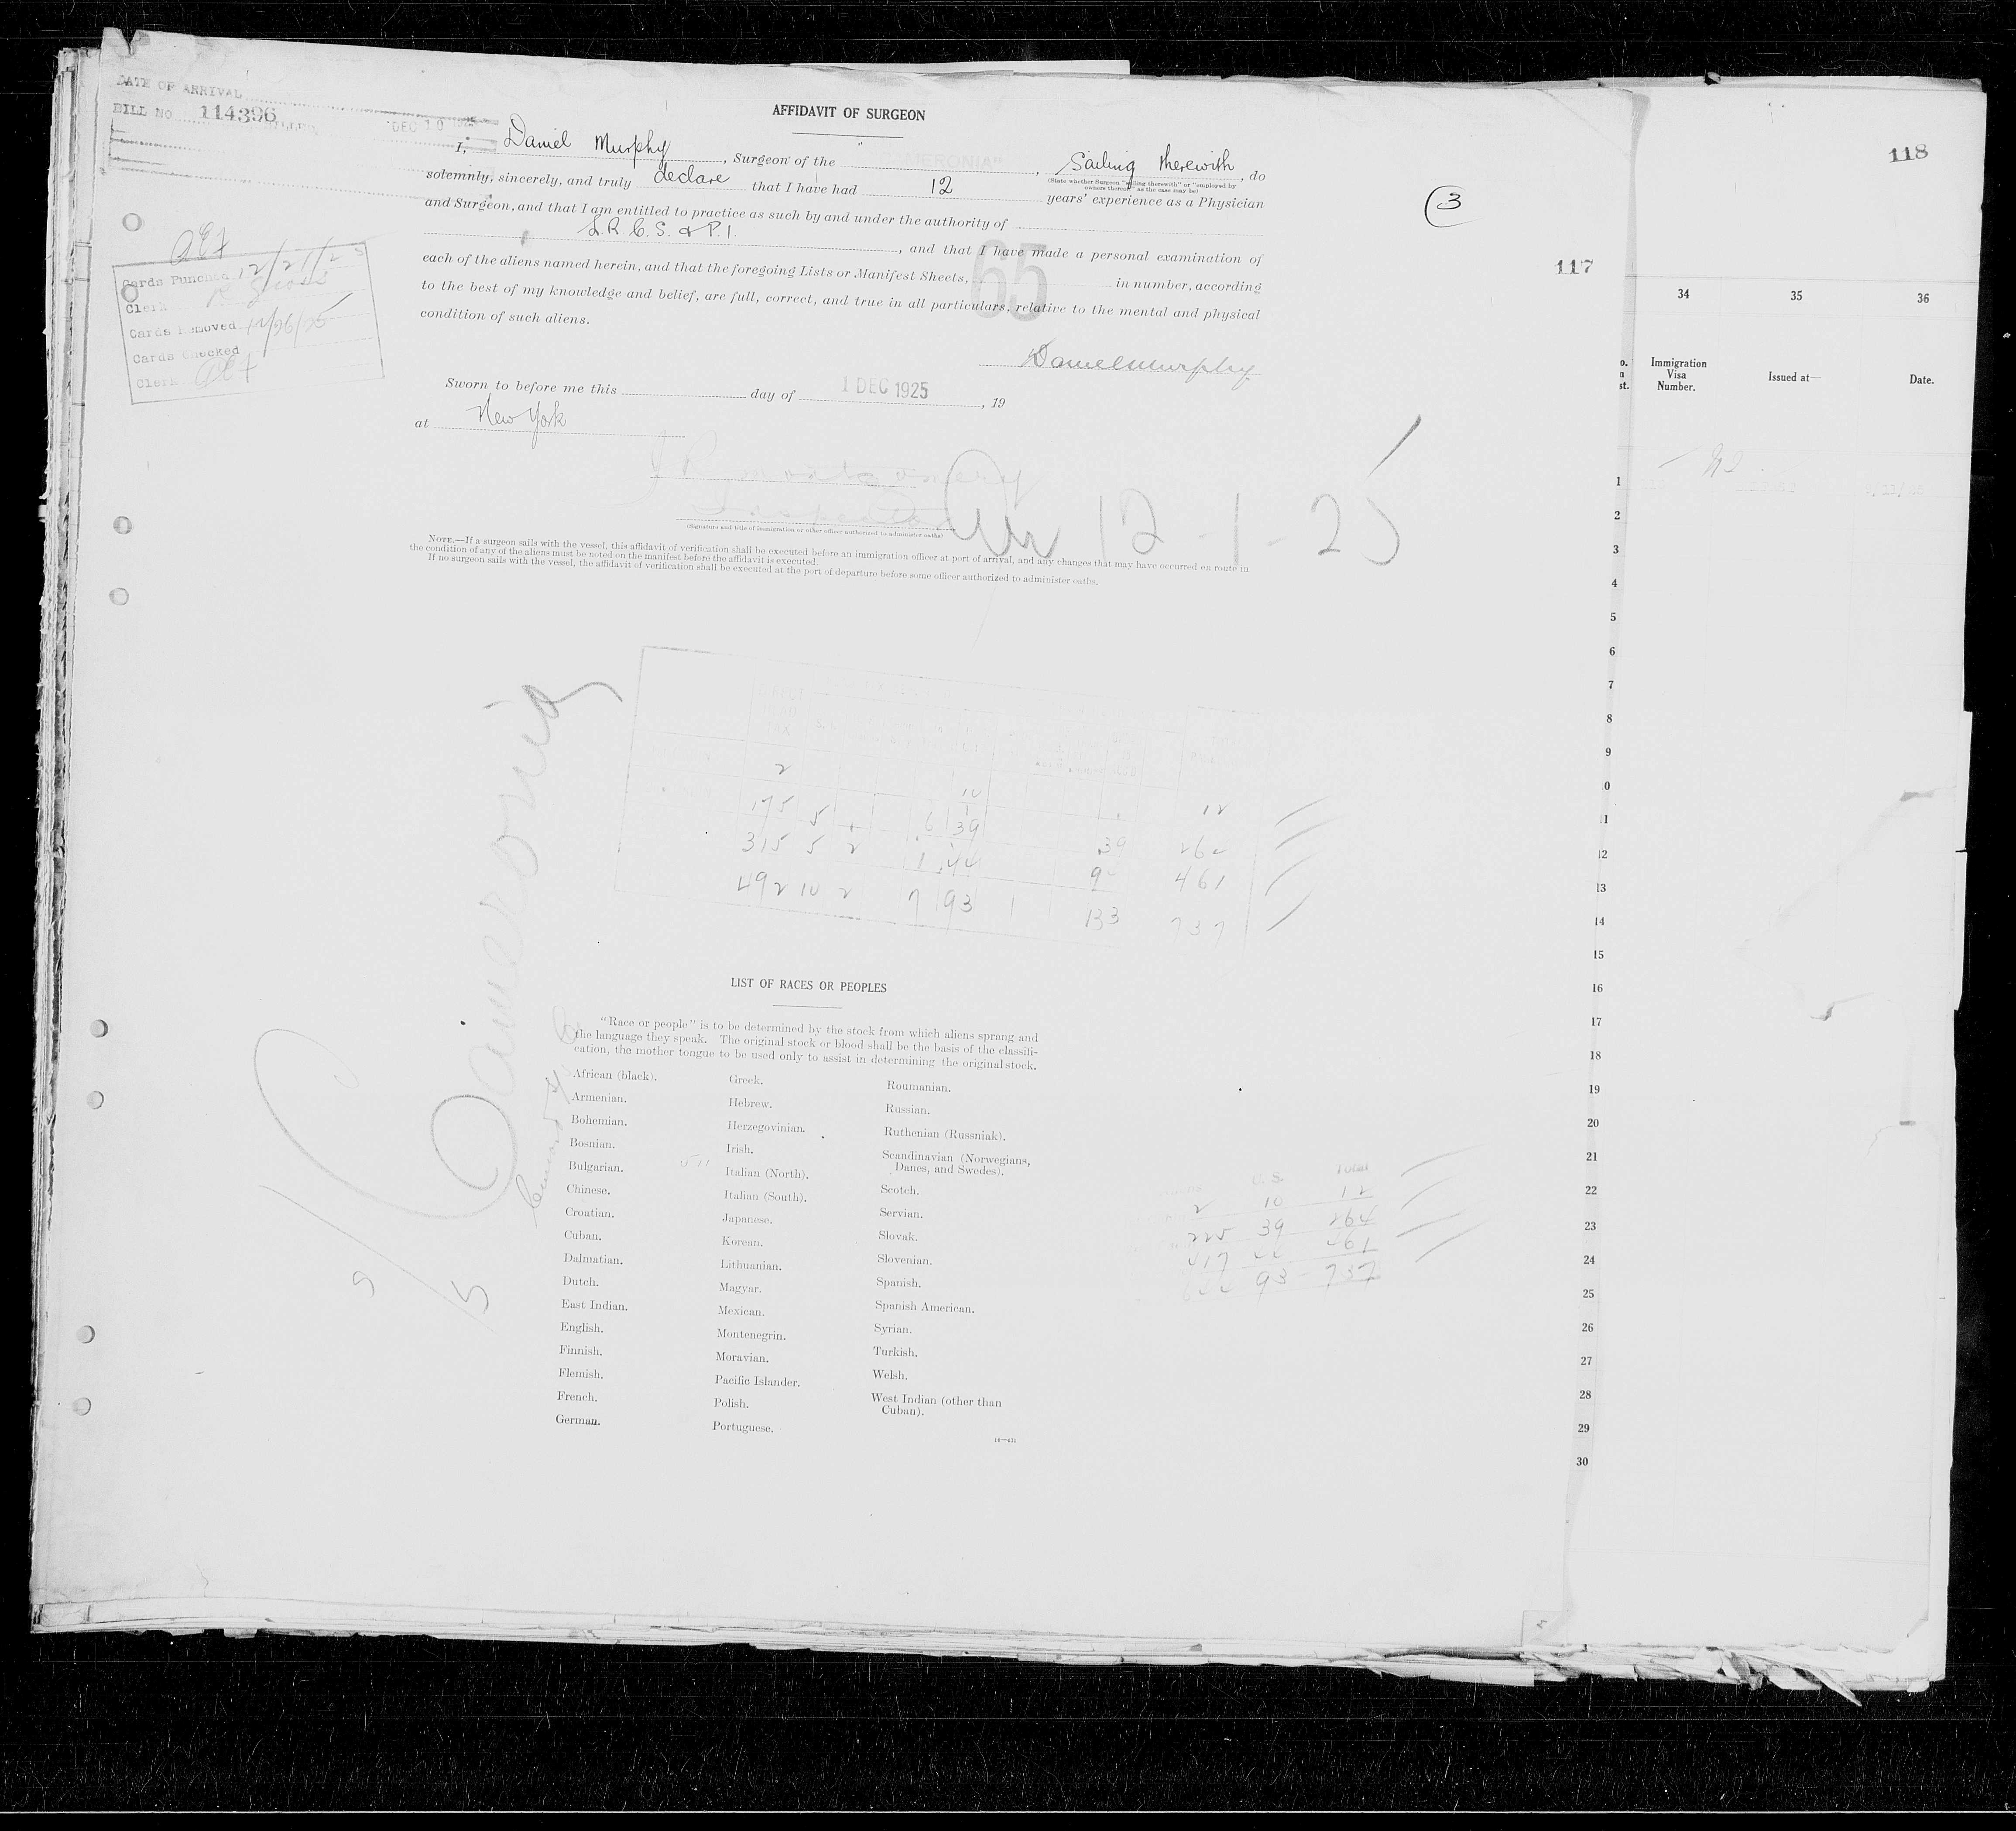 DATE OF ARRIVAL
BILL NO. 114396
DEC 10 1925
AFFIDAVIT OF SURGEON
118
I, Daniel Murphy, Surgeon of the "CAMERONIA", Sailing therewith, do
(State whether Surgeon "sailing therewith" or "employed by owners thereof" as the case may be)
solemnly, sincerely, and truly declare that I have had 12 years' experience as a Physician
and Surgeon, and that I am entitled to practice as such by and under the authority of
L.R.C.S. & P.I., and that I have made a personal examination of
each of the aliens named herein, and that the foregoing Lists or Manifest Sheets, 65 in number, according
to the best of my knowledge and belief, are full, correct, and true in all particulars, relative to the mental and physical
condition of such aliens.
Daniel Murphy
Sworn to before me this day of 1 DEC 1925, 19
at New York
3
117
Cards Punched 12/21/25
Clerk
Cards Removed 12/26/25
Cards Checked
Clerk
34 35 36
Immigration Visa Number. Issued at— Date.
(Signature and title of immigration or other officer authorized to administer oaths)
12-1-25
NOTE.—If a surgeon sails with the vessel, this affidavit of verification shall be executed before an immigration officer at port of arrival, and any changes that may have occurred en route in
the condition of any of the aliens must be noted on the manifest before the affidavit is executed.
If no surgeon sails with the vessel, the affidavit of verification shall be executed at the port of departure before some officer authorized to administer oaths.
Cameronia
2 10 12
175 5 6 39 39 262
315 5 2 1 44 461
492 10 2 7 93 1 133 737
LIST OF RACES OR PEOPLES
"Race or people" is to be determined by the stock from which aliens sprang and
the language they speak. The original stock or blood shall be the basis of the classifi-
cation, the mother tongue to be used only to assist in determining the original stock.
African (black).
Armenian.
Bohemian.
Bosnian.
Bulgarian.
Chinese.
Croatian.
Cuban.
Dalmatian.
Dutch.
East Indian.
English.
Finnish.
Flemish.
French.
German.
Greek.
Hebrew.
Herzegovinian.
Irish.
Italian (North).
Italian (South).
Japanese.
Korean.
Lithuanian.
Magyar.
Mexican.
Montenegrin.
Moravian.
Pacific Islander.
Polish.
Portuguese.
Roumanian.
Russian.
Ruthenian (Russniak).
Scandinavian (Norwegians,
Danes, and Swedes).
Scotch.
Servian.
Slovak.
Slovenian.
Spanish.
Spanish American.
Syrian.
Turkish.
Welsh.
West Indian (other than
Cuban).
U.S. Total
2 10 12
225 39 264
461
93 737
1
2
3
4
5
6
7
8
9
0
11
12
13
14
15
16
17
18
19
20
21
22
23
24
25
26
27
28
29
30